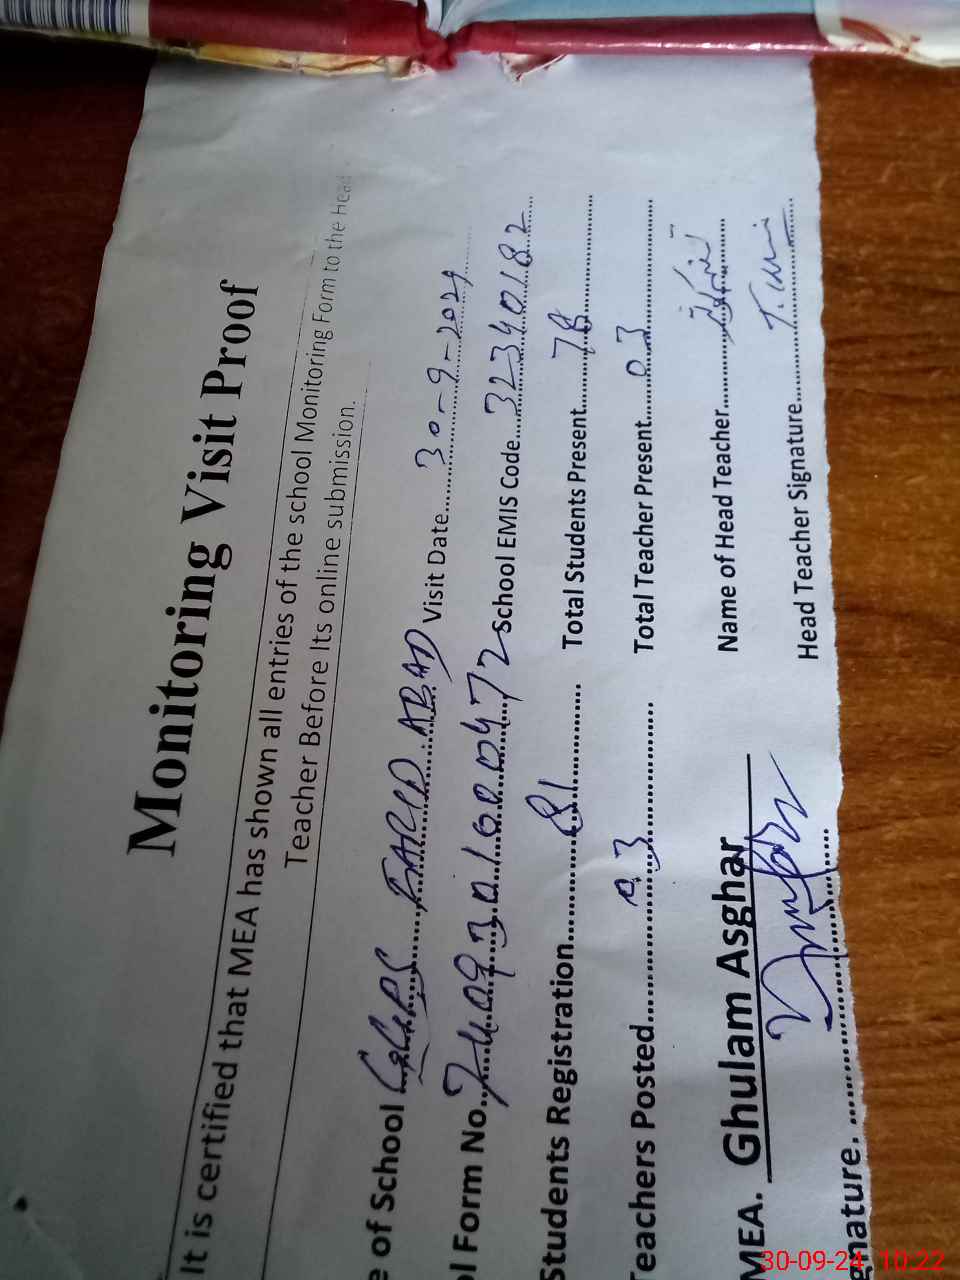 Monitoring Visit Proof
It is certified that MEA has shown all entries of the school Monitoring Form to the Head
Teacher Before Its online submission.
e of School GGPS FARID ABAD Visit Date 30-9-2024
ol Form No. School EMIS Code 32340182
Students Registration 81 Total Students Present 78
Teachers Posted 03 Total Teacher Present 03
MEA. Ghulam Asghar Name of Head Teacher
gnature. Head Teacher Signature
30-09-24 10:22